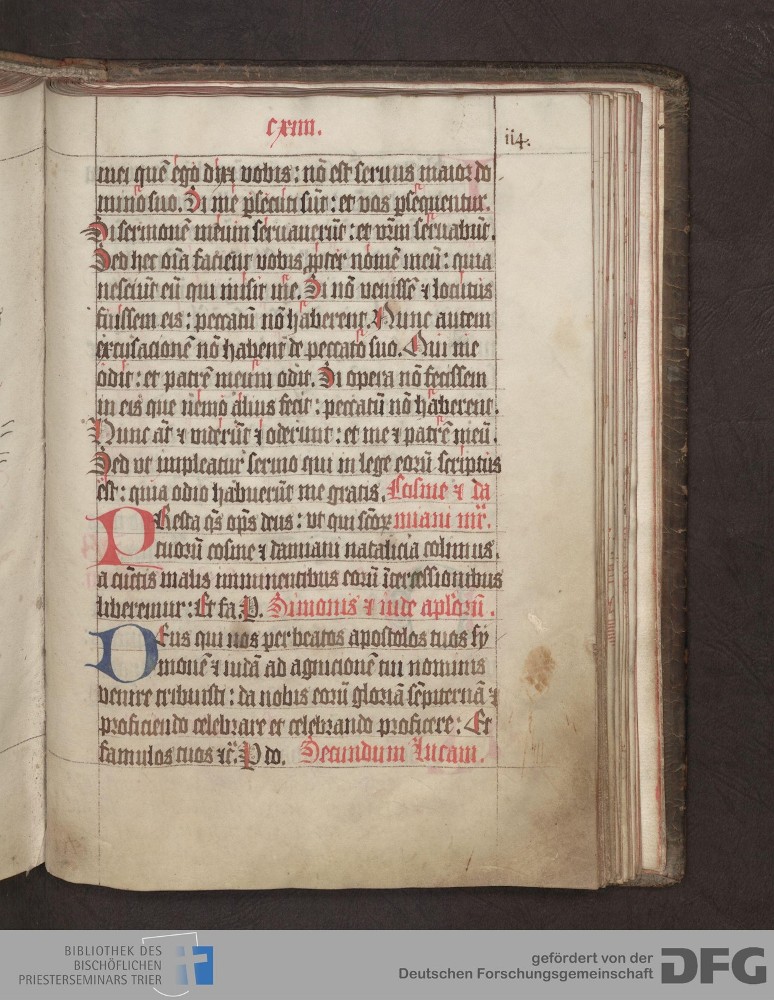 cxiiii.
ii4.
mei quē ego dixi vobis : nō est seruus maior do
mino suo. Si me ꝑsecuti sūt : et vos ꝑsequentur.
Si sermonē meum seruauerūt : et vr̄m seruabūt.
Sed hec oīa facient vobis ꝓpter nomē meū : quia
nesciūt eū qui misit me. Si nō venissē ⁊ locutus
fuissem eis : peccatū nō haberent. Nunc autem
excusacionē nō habent de peccato suo. Qui me
odit : et patrē meum odit. Si opera nō fecissem
in eis que nemo alius fecit : peccatū nō haberent.
Nunc aūt ⁊ viderūt ⁊ oderunt : et me ⁊ patrē meū.
Sed vt impleatur sermo qui in lege eorū scriptus
est : quia odio habuerūt me gratis. Cosme ⁊ da
PResta qs̄ ops̄ deus : vt qui scōꝝ miani mr̄.
tuorū cosme ⁊ damiani natalicia colimus.
a cūctis malis imminentibus eorū ītercessionibus
liberemur : Et fa. P. Simonis ⁊ iude aplorū.
DEus qui nos per beatos apostolos tuos sy
monē ⁊ iudā ad agnicionē tui nominis
venire tribuisti : da nobis eorū gloriā sēpiternā ⁊
proficiendo celebrare et celebrando proficere : Et
famulos tuos ⁊c̄. P do. Secundum Lucam.
BIBLIOTHEK DES
BISCHÖFLICHEN
PRIESTERSEMINARS TRIER
gefördert von der
Deutschen Forschungsgemeinschaft DFG